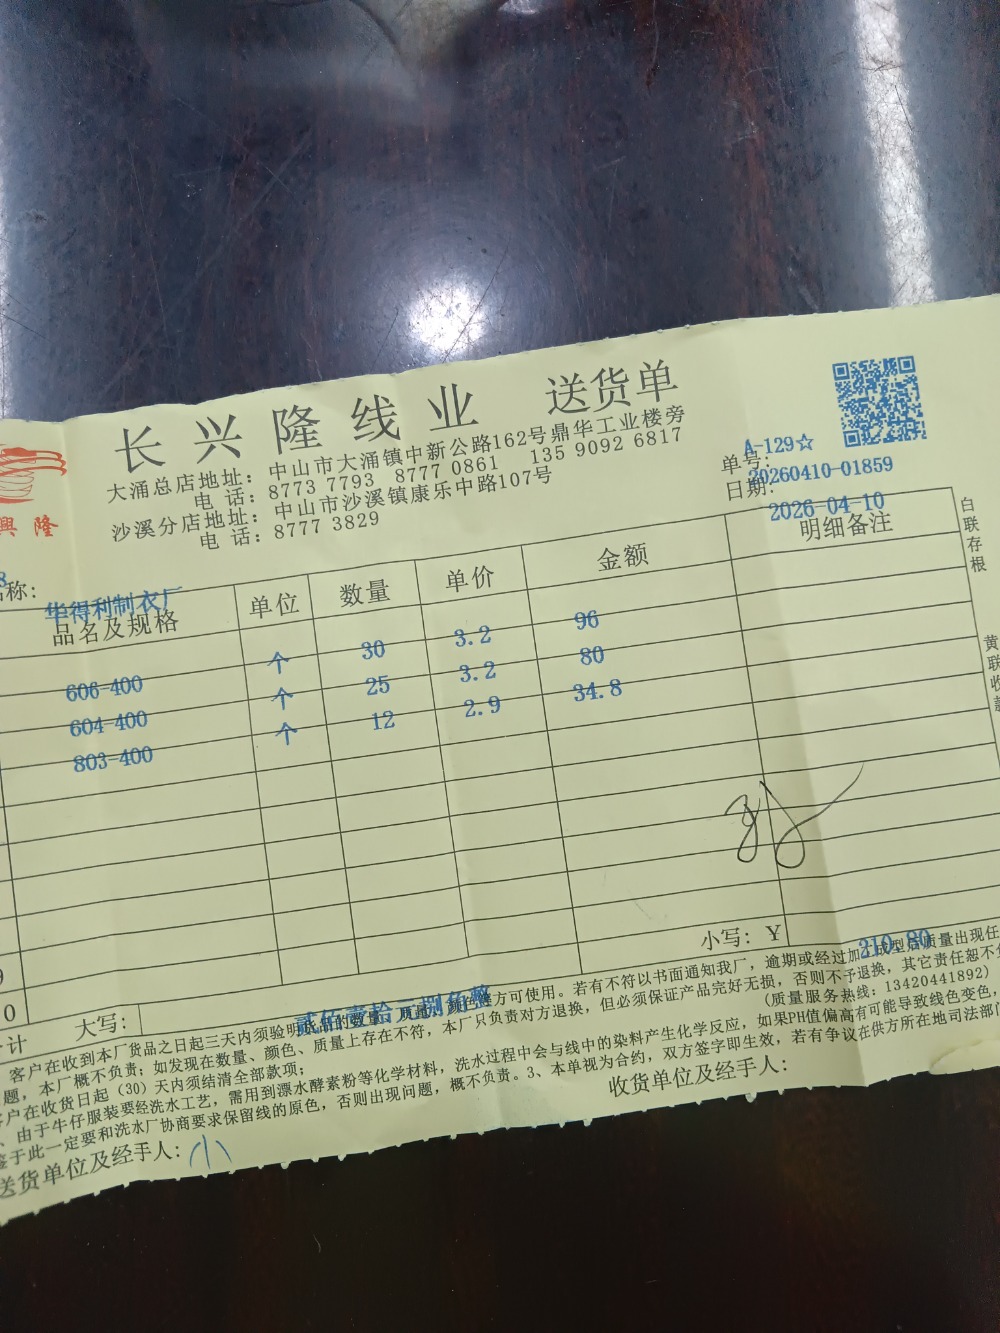 長興隆线业 送货单
興隆
大涌总店地址：中山市大涌镇中新公路162号鼎华工业楼旁
电 话：8773 7793 8777 0861 135 9092 6817
沙溪分店地址：中山市沙溪镇康乐中路107号
电 话：8777 3829
A-129☆
单号：20260410-01859
日期：2026-04-10
称：华得利制衣厂
品名及规格 单位 数量 单价 金额 明细备注
606-400 个 30 3.2 96
604-400 个 25 3.2 80
803-400 个 12 2.9 34.8
白联存根
黄联收
9
0
小写：¥ 210.80
计 大写：贰佰壹拾元捌角整
客户在收到本厂货品之日起三天内须验明货品的数量、质量、颜色等方可使用。若有不符以书面通知我厂，逾期或经过加工成型后质量出现任
题，本厂概不负责；如发现在数量、颜色、质量上存在不符，本厂只负责对方退换，但必须保证产品完好无损，否则不予退换，其它责任恕不负
客户在收货日起（30）天内须结清全部款项； （质量服务热线：13420441892）
、由于牛仔服装要经洗水工艺，需用到漂水酵素粉等化学材料，洗水过程中会与线中的染料产生化学反应，如果PH值偏高有可能导致线色变色，
鉴于此一定要和洗水厂协商要求保留线的原色，否则出现问题，概不负责。3、本单视为合约，双方签字即生效，若有争议在供方所在地司法部门
送货单位及经手人：小 收货单位及经手人：